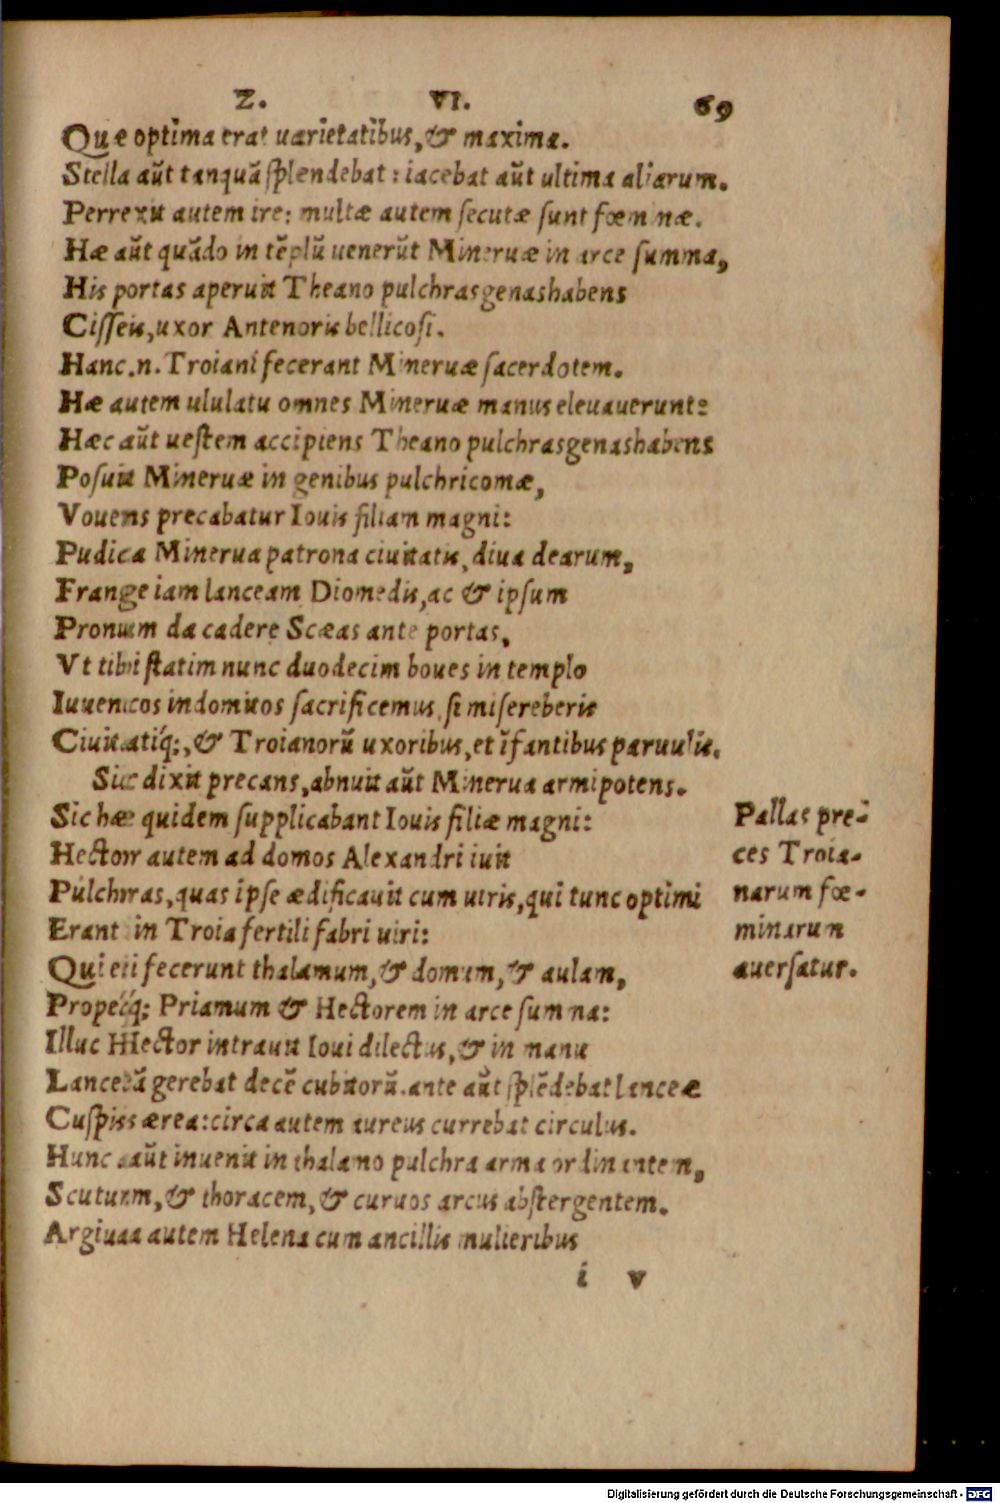 Z. VI. 69
Quæ optima erat uarietatibus, & maxima.
Stella aũt tanquã splendebat: iacebat aũt ultima aliarum.
Perrexit autem ire: multæ autem secutæ sunt fœminæ.
Hæ aũt quãdo in tẽplũ uenerũt Mineruæ in arce summa,
His portas aperuit Theano pulchrasgenashabens
Cisseis, uxor Antenoris bellicosi.
Hanc.n. Troiani fecerant Mineruæ sacerdotem.
Hæ autem ululatu omnes Mineruæ manus eleuauerunt:
Hæc aũt uestem accipiens Theano pulchrasgenashabens
Posuit Mineruæ in genibus pulchricomæ,
Vouens precabatur Iouis filiam magni:
Pudica Minerua patrona ciuitatis, diua dearum,
Frange iam lanceam Diomedis, ac & ipsum
Pronum da cadere Scæas ante portas,
Vt tibi statim nunc duodecim boues in templo
Iuuencos indomitos sacrificemus, si misereberis
Ciuitatiq́;, & Troianorũ uxoribus, et ĩfantibus paruulis.
Sic dixit precans, abnuit aũt Minerua armipotens.
Sic hæ quidem supplicabant Iouis filiæ magni:
Hector autem ad domos Alexandri iuit
Pulchras, quas ipse ædificauit cum uiris, qui tunc optimi
Erant in Troia fertili fabri uiri:
Qui ei fecerunt thalamum, & domum, & aulam,
Propeq́; Priamum & Hectorem in arce summa:
Illuc Hector intrauit Ioui dilectus, & in manu
Lanceã gerebat decẽ cubitorũ. ante aũt splẽdebat lanceæ
Cuspis ærea: circa autem aureus currebat circulus.
Hunc aũt inuenit in thalamo pulchra arma ordinantem,
Scutum, & thoracem, & curuos arcus abstergentem.
Argiua autem Helena cum ancillis mulieribus
i v
Pallas pre-
ces Troia-
narum fœ-
minarum
auersatur.
Digitalisierung gefördert durch die Deutsche Forschungsgemeinschaft - DFG